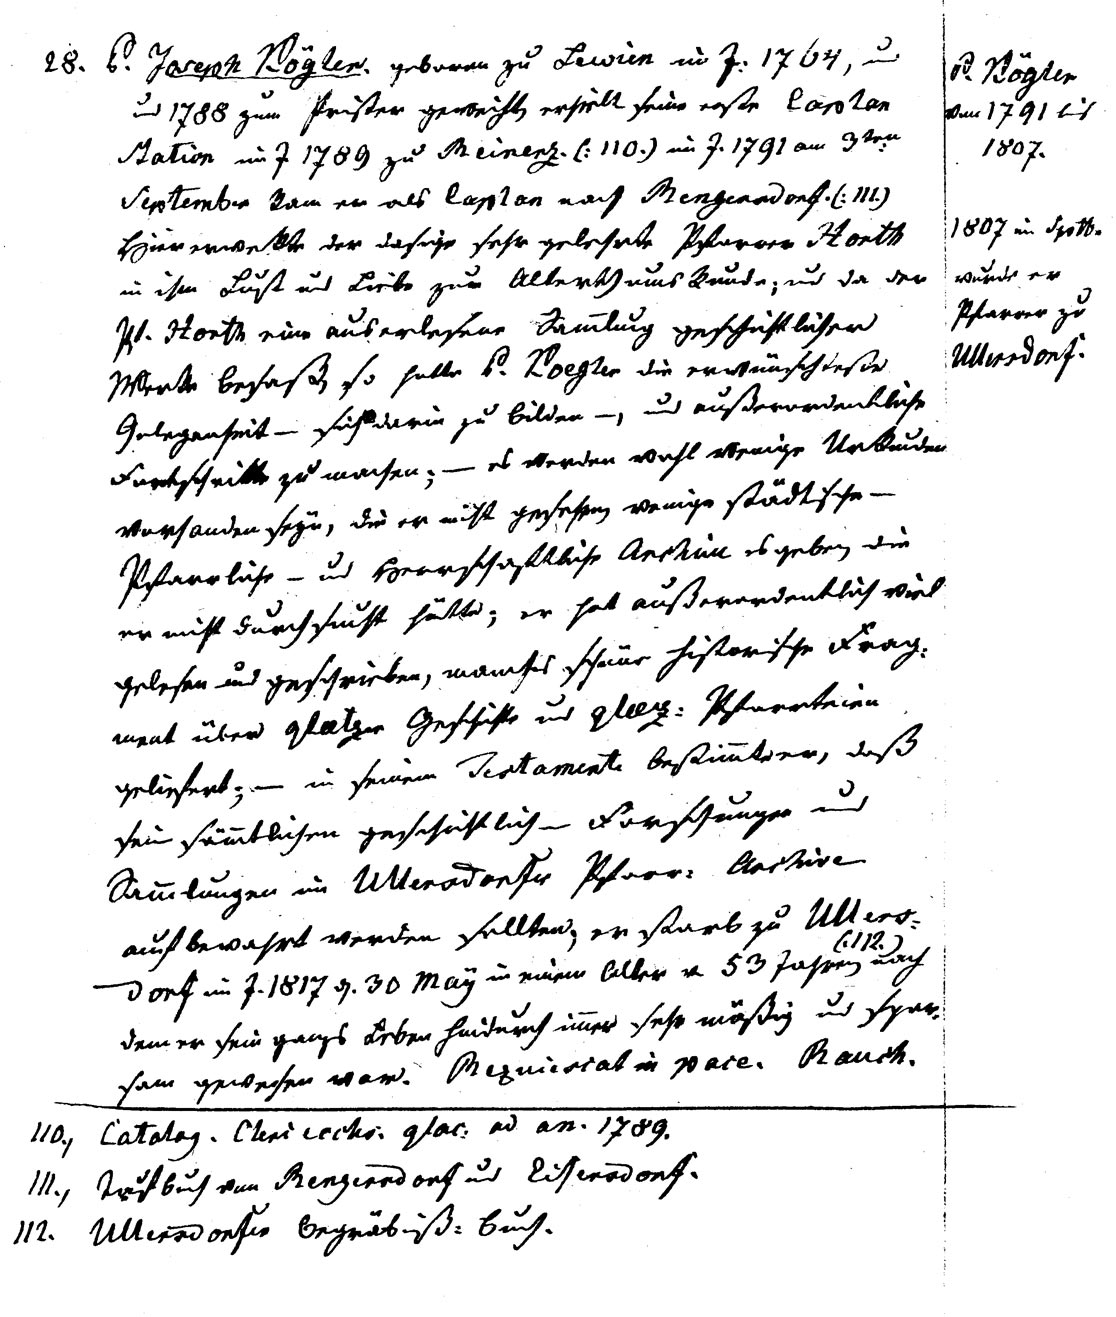 28. P. Joseph Kögler. geboren zu Lewien im J: 1764, u
und 1788 zum Prister geweiht, erhielt seine erste Caplan
Station im J 1789 zu Reinerz. (: 110.) im J. 1791 am 3ten
September kam er als Caplan nach Rengersdorf. (: 111.)
Hier erwekte der dasige sehr gelehrte Pfarrer Hoeth
in ihm Lust und Liebe zur Alterthums Kunde; und da der
Pf. Hoeth eine auserlesene Sammlung geschichtlicher
Werke besaß, so hatte P. Koegler die erwünschteste
Gelegenheit – sich darin zu bilden –, und außerordentliche
Fortschritte zu machen; – es werden wohl wenige Urkunden
vorhanden seÿn, die er nicht gesehen, wenige städtische –
Pfarrliche – und Herrschaftliche Archive es geben, die
er nicht durchsucht hätte; er hat außerordentlich viel
gelesen und geschrieben, manches schöne historische Frag:
ment über glatzer Geschichte und glaz: Pfarrteien
geliefert; – in seinem Testamente bestimmte er, daß
sein sämtlichen geschichtlich– Forschungen und
Sammlungen im Ullersdorfer Pfarr: Archive
aufbewahrt werden sollten; er starb zu Ullers:
(: 112.)
dorf im J. 1817 d. 30 Maÿ in einem Alter v 53 Jahren, nach
dem er sein ganzes Leben hindurch immer sehr mäßig und spar:
sam gewesen war. Requiescat in pace. Rauch.
P. Kögler
von 1791 bis
1807.
1807 im Septb.
wurde er
Pfarrer zu
Ullersdorf.
110., Catalog. Cleri eccles. glac: ad an. 1789.
111., Taufbuch von Rengersdorf und Eisersdorf.
112. Ullersdorfer Begräbniß: buch.